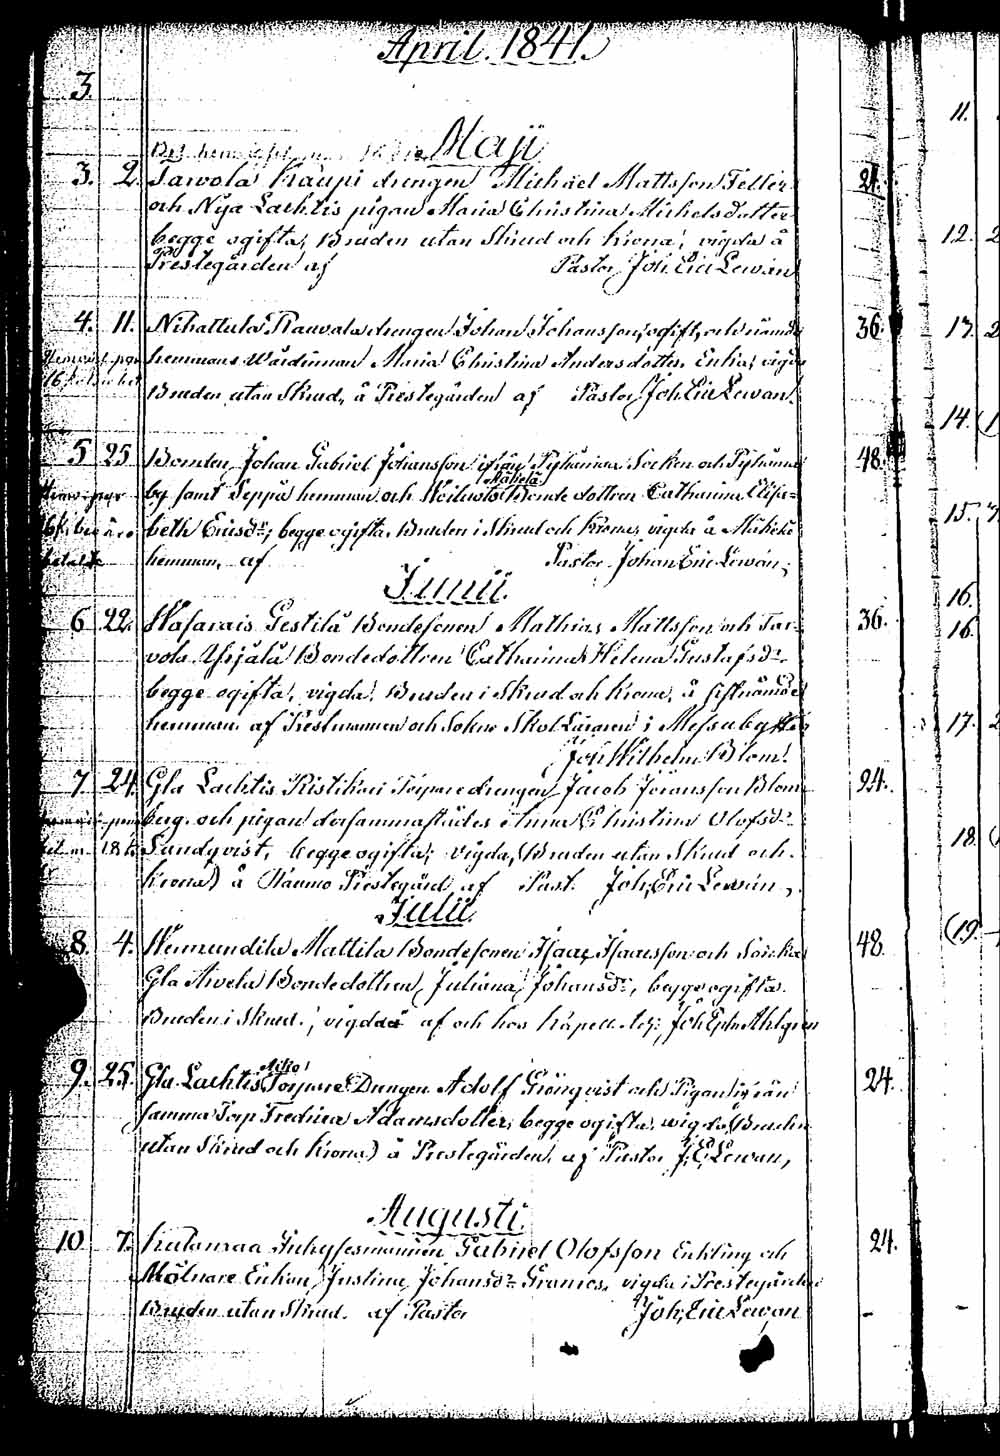 April. 1841.
3.
Maji
3. 2. Tarvola Kaupi drengen Michael Mattsson Teller 24.
och Nya Lachtis pigan Maria Christina Michelsdotter
begge ogifta, Bruden utan Skrud och krona, vigda å
Prestegården af Pastor Joh. Eric Lewan
4. 11. Nihattula Rauvala drengen Johan Johansson, ogift, och nämde 36.
hemmans Wärdinnan Maria Christina Andersdotter, Enka, vigde
Bruden utan Skrud, å Prestegården af Pastor Joh. Eric Lewan.
5 25 Bonden Johan Gabriel Johansson ifrån Socken och 48.
Mäkelä
by samt Seppä hemman och Bonde dottren Catharina Elisa=
beth Ericsdr, begge ogifta, Bruden i Skrud och Krona, vigda å Mäkelä
hemman, af Pastor Johan Eric Lewan,
Junii.
6 22. Wafarais Gestilä Bondesonen Mathias Mattsson och Tar-
36.
vola Yrjälä Bondedottren Catharina Helena Gustafsdr
begge ogifta, vigda, Bruden i Skrud och krona, å sistnämde
hemman af Prestmannen och Sokne Skol Läraren i Messuby
Joh. Wilhelm Blom.
7 24. Gla Lachtis Ristikivi Torpare drengen Jacob Jöransson Blom 24.
berg. och pigan dersammastädes Anna Christina Olofsdr
Sundqvist, begge ogifta; vigda, (Bruden utan Skrud och
krona) å Raumo Prestegård af Past. Joh. Eric Lewan,
Julii.
8. 4. Mattila Bondesonen Isaac Isaacsson och 48.
Gla Arvela Bondedottren Juliana Johansdr, begge ogifta
Bruden i Skrud, vigda af och hos Kapell. Joh. Ephr. Ahlgren
9. 25. Gla Lachtis Torpare Drengen Adolf Grönqvist och Pigan ifrån 24.
samma Torp Fredrica Adamsdotter, begge ogifta, vigda (Bruden
utan Skrud och krona) å Prestegården, af Pastor J. E. Lewan,
Augusti.
10 7. Inhysesmannen Gabriel Olofsson Enkling och 24.
Mölnare Enkan Justina Johansdr Granroos, vigda i Prestegården
Bruden utan Skrud. af Pastor Joh. Eric Lewan
11.
12.
13.
14.
15.
16.
16.
17.
18.
(19.